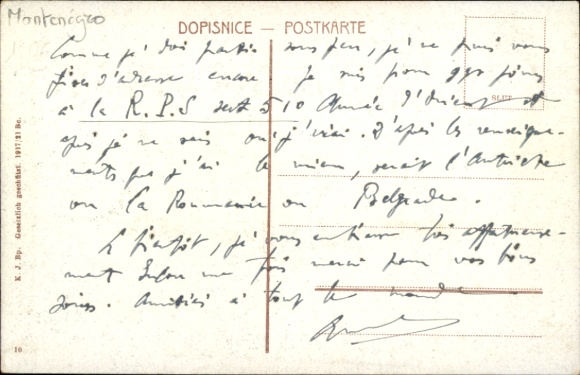 Montenegro
DOPISNICE — POSTKARTE
Comme je dois partir sous peu, je ne puis vous
d'adresse encore je suis pour qqs jours
à la R.P.S sect 510 Armée d'Orient et
après je ne sais où j'irai. D'après les renseigne-
ments que j'ai le mieux, serait l'Autriche
ou la Roumanie ou Belgrade.
A bientôt, je vous embrasse bien affectueuse-
ment encore une fois merci pour vos bons
soins. Amitiés à tout le monde
K. J. Bp. Gesetzlich geschützt. 1917/21 Be.
10